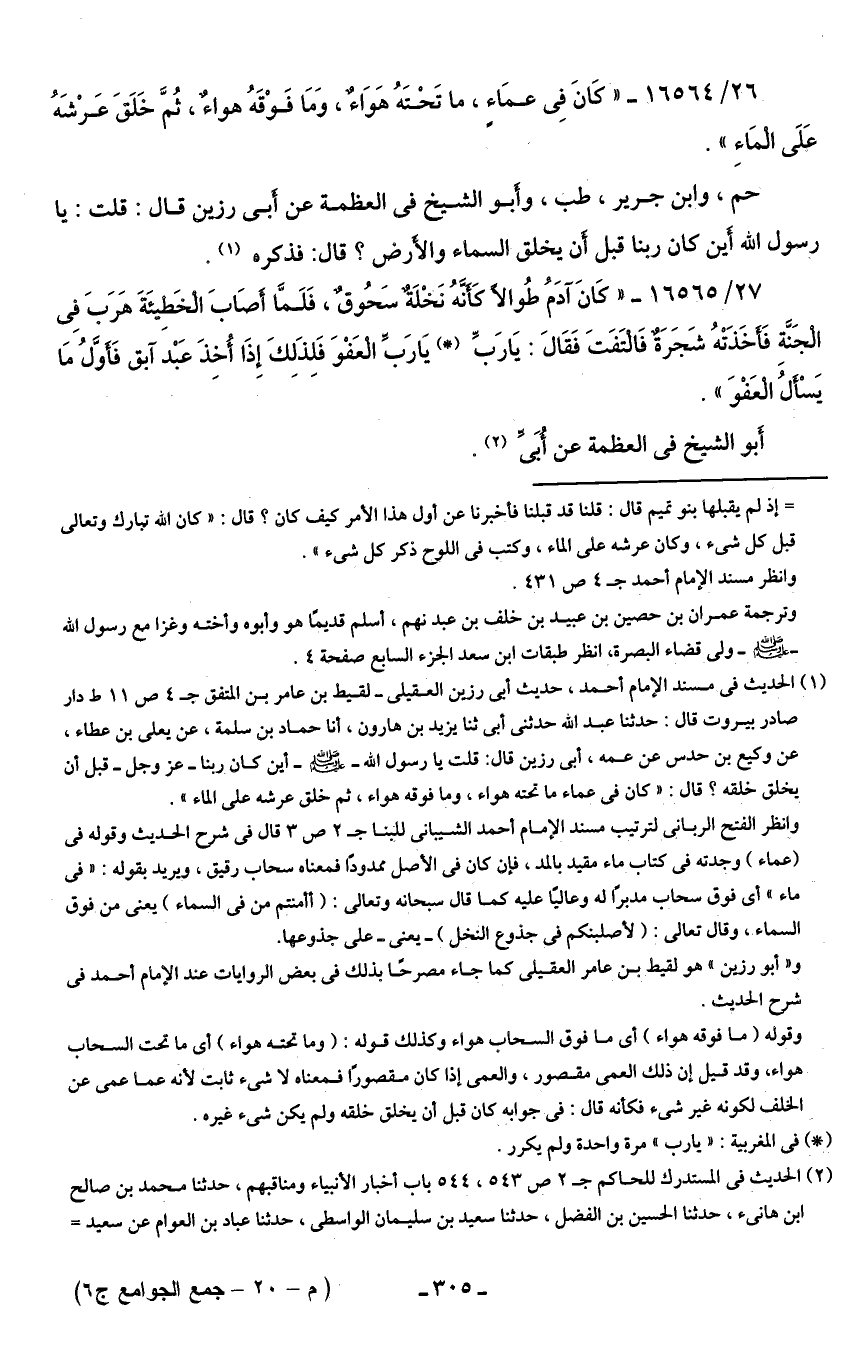 ٢٦/ ١٦٥٦٤ ـ « كَانَ فِى عـمَاءٍ ، ما تَحْـتَهُ هَوَاءٌ ، وَمَا فَـوْقَهُ هواءٌ ، ثُمَّ خَلَقَ عَـرْشَهُ
عَلَى الْمَاءِ » .
حم ، وابن جرير ، طب ، وأَبـو الشـيخ فى العظمـة عن أَبـى رزين قـال : قلت : يا
رسول الله أَين كان ربنا قبل أَن يخلق السماء والأَرض ؟ قال: فذكره (١) .
٢٧/ ١٦٥٦٥ ـ « كَانَ آدَمُ طُوالاً كَأَنَّهُ نَخْلَةٌ سَحُوقٌ ، فَلَـمَّا أَصَابَ الْخَطِيئَةَ هَرَبَ فِى
الْجَنَّةِ فَأَخَذَتْهُ شَجَرَةٌ فَالْتَفَتَ فَقَالَ : يَارَبِّ (*) يَارَبِّ الْعَفْوَ فَلِذَلِكَ إِذَا أُخِذَ عَبْد آبق فَأَوَّلُ مَا
يَسْأَلُ الْعَفْوَ » .
أَبو الشيخ فى العظمة عن أُبَىٍّ (٢) .
= إذ لم يقبلها بنو تميم قال : قلنا قد قبلنا فأخبرنا عن أول هذا الأمر كيف كان ؟ قال : « كان الله تبارك وتعالى
قبل كل شىء ، وكان عرشه على الماء ، وكتب فى اللوح ذكر كل شىء » .
وانظر مسند الإمام أحمد جـ ٤ ص ٤٣١ .
وترجمة عمـران بن حصين بن عبيـد بن خلف بن عبد نهم ، أسلم قديمًا هو وأبوه وأختـه وغزا مع رسول الله
ـ ﷺ ـ ولى قضاء البصرة، انظر طبقات ابن سعد الجزء السابع صفحة ٤ .
(١) الحديث فى مسـند الإمام أحمـد ، حديث أبى رزين العـقيلى ـ لقيـط بن عامر بـن المتفق جـ ٤ ص ١١ ط دار
صادر بيروت قال : حدثنا عبـد الله حدثنى أبى ثنا يزيد بن هارون ، أنا حمـاد بن سلمة ، عن يعلى بن عطاء ،
عن وكيع بن حدس عن عمـه ، أبى رزين قال: قلت يا رسول الله ـ ﷺ ـ أين كـان ربنا ـ عز وجل ـ قبل أن
يخلق خلقه ؟ قال : « كان فى عماء ما تحته هواء ، وما فوقه هواء ، ثم خلق عرشه على الماء » .
وانظر الفتح الربـانى لترتيب مسند الإمـام أحمد الشـيبانى للبنـا جـ ٢ ص ٣ قال فى شرح الحـديث وقوله فى
(عماء ) وجدته فى كتاب ماء مقيد بالمد ، فإن كان فى الأصل ممدودًا فمعناه سحاب رقيق ، ويريد بقوله : « فى
ماء » أى فوق سحاب مدبرًا له وعاليًا عليه كمـا قال سبحانه وتعالى : ( أأمنتم من فى السماء ) يعنى من فوق
السماء ، وقال تعالى : ( لأصلبنكم فى جذوع النخل ) ـ يعنى ـ على جذوعها.
و« أبو رزين » هو لقيط بـن عامر العقـيلى كما جـاء مصرحًـا بذلك فى بعض الروايات عند الإمام أحـمد فى
شرح الحديث .
وقوله ( مـا فوقه هواء ) أى مـا فوق السـحاب هواء وكذلك قـوله : ( وما تحتـه هواء ) أى ما تحت السـحاب
هواء، وقد قـيل إن ذلك العمى مقـصور ، والعمى إذا كان مـقصورًا فـمعناه لا شىء ثابت لأنه عمـا عمى عن
الخلف لكونه غير شىء فكأنه قال : فى جوابه كان قبل أن يخلق خلقه ولم يكن شىء غيره .
(*) فى المغربية : « يارب » مرة واحدة ولم يكرر .
(٢) الحديث فى المستدرك للحاكم جـ ٢ ص ٥٤٣ ، ٥٤٤ باب أخبار الأنبياء ومناقبهم ، حدثنا محمد بن صالح
ابن هانىء ، حدثنا الحسين بن الفضل ، حدثنا سعيد بن سليمان الواسطى ، حدثنا عباد بن العوام عن سعيد =
ـ ٣٠٥ ـ
( م - ٢٠ - جمع الجوامع ج٦ )